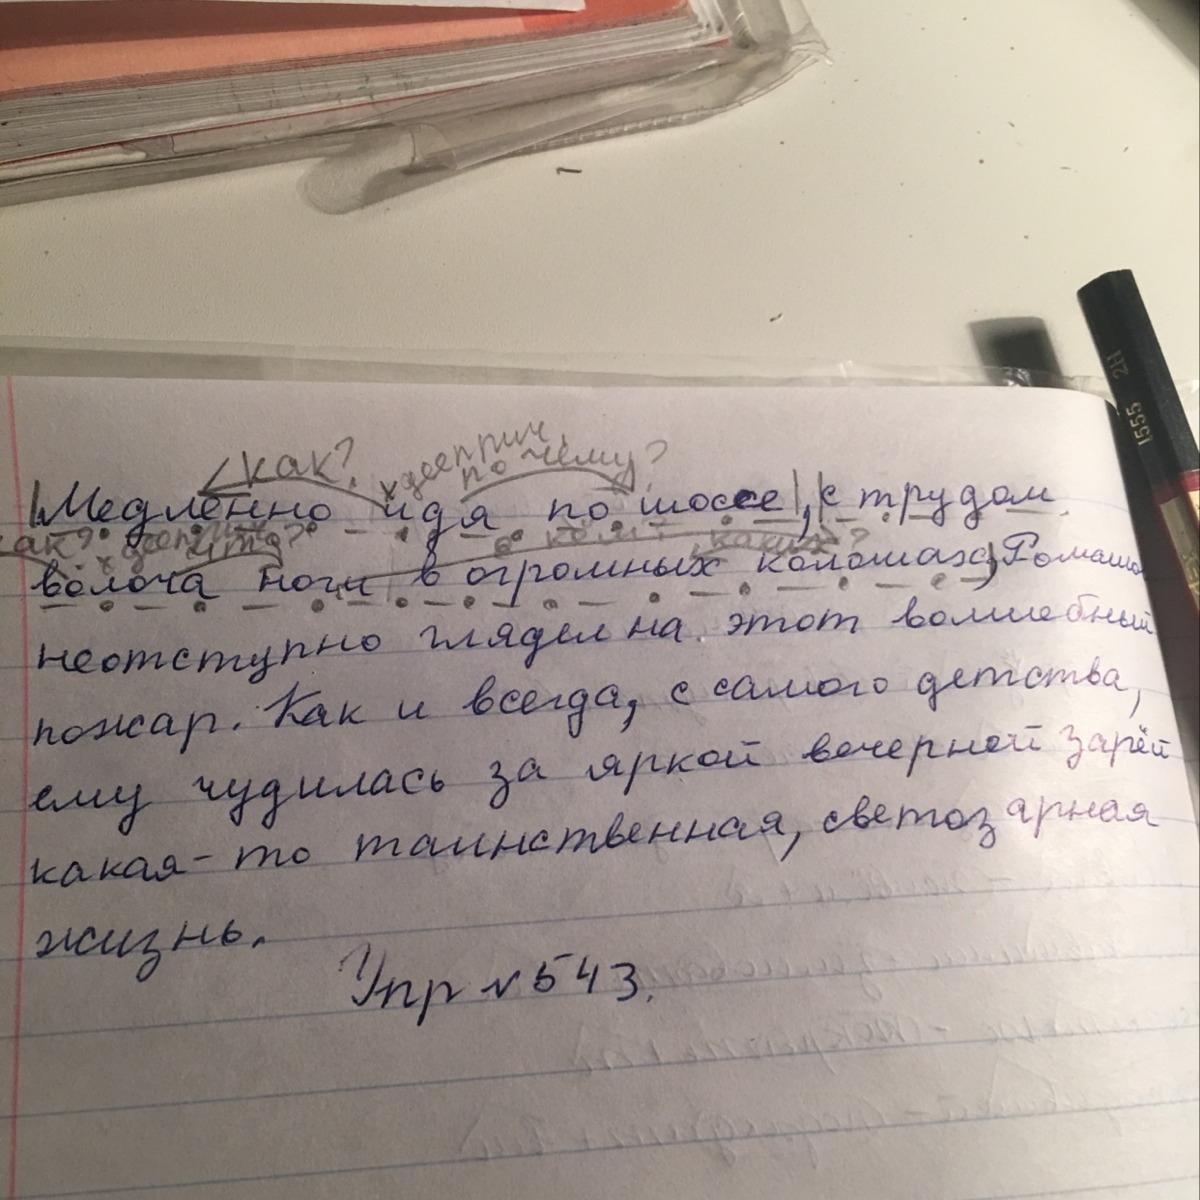 как? дееприч. по чему?
Медленно идя по шоссе, с трудом
как? дееприч. что? в каких?
волоча ноги в огромных калошах, Ромашо
неотступно глядел на этот волшебный
пожар. Как и всегда, с самого детства,
ему чудилась за яркой вечерней зарёй
какая-то таинственная, светозарная
жизнь.
Упр № 543.
1555 2H